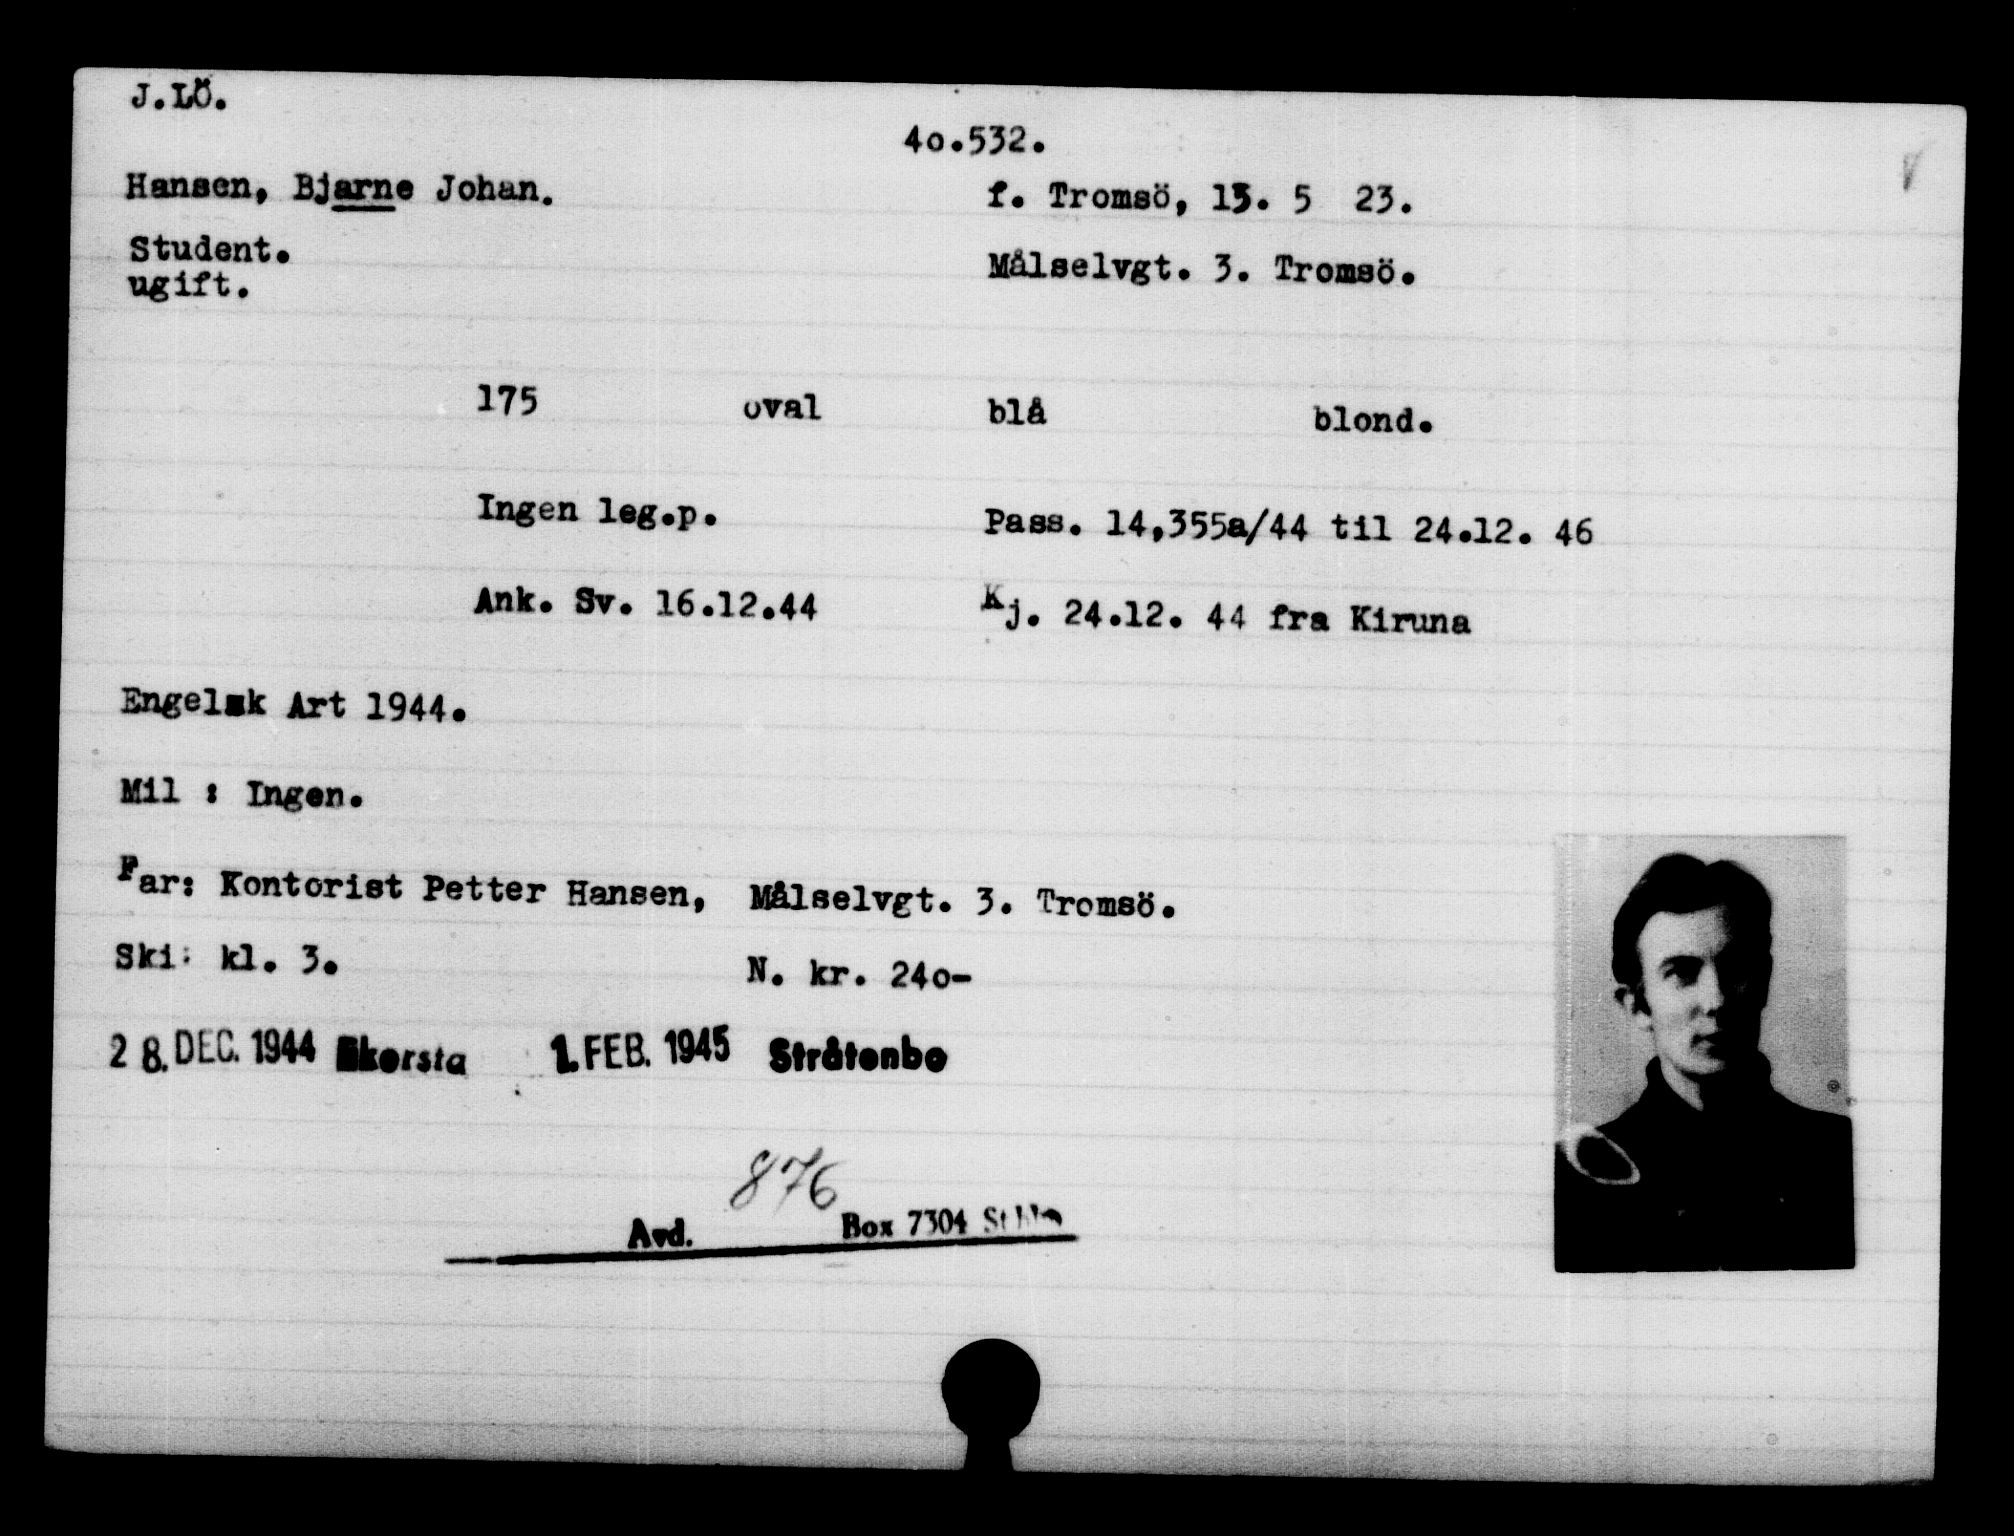 J.LÖ.
4o.532.
Hansen, Bjarne Johan.
f. Tromsö, 13. 5 23.
Student.
Målselvgt. 3. Tromsö.
ugift.
175 oval blå blond.
Ingen leg.p.
Pass. 14,355a/44 til 24.12. 46
Ank. Sv. 16.12.44
Kj. 24.12. 44 fra Kiruna
Engelsk Art 1944.
Mil : Ingen.
Far: Kontorist Petter Hansen, Målselvgt. 3. Tromsö.
Ski: kl. 3.
N. kr. 24o-
28. DEC. 1944 Ekersta 1. FEB. 1945 Stråtenbo
876
Avd. Box 7304 Sthlm